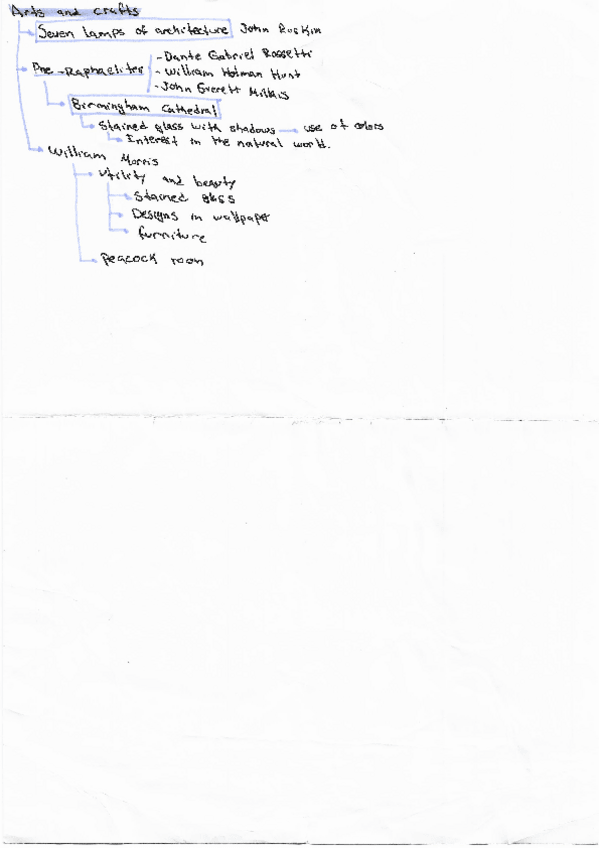 Arts and crafts
Seven lamps of architecture John Ruskin
Pre-Raphaelites
- Dante Gabriel Rossetti
- William Holman Hunt
- John Everett Millais
Birmingham Cathedral
Stained glass with shadows — use of colors
Interest in the natural world.
William Morris
Utility and beauty
Stained glass
Designs in wallpaper
furniture
Peacock room